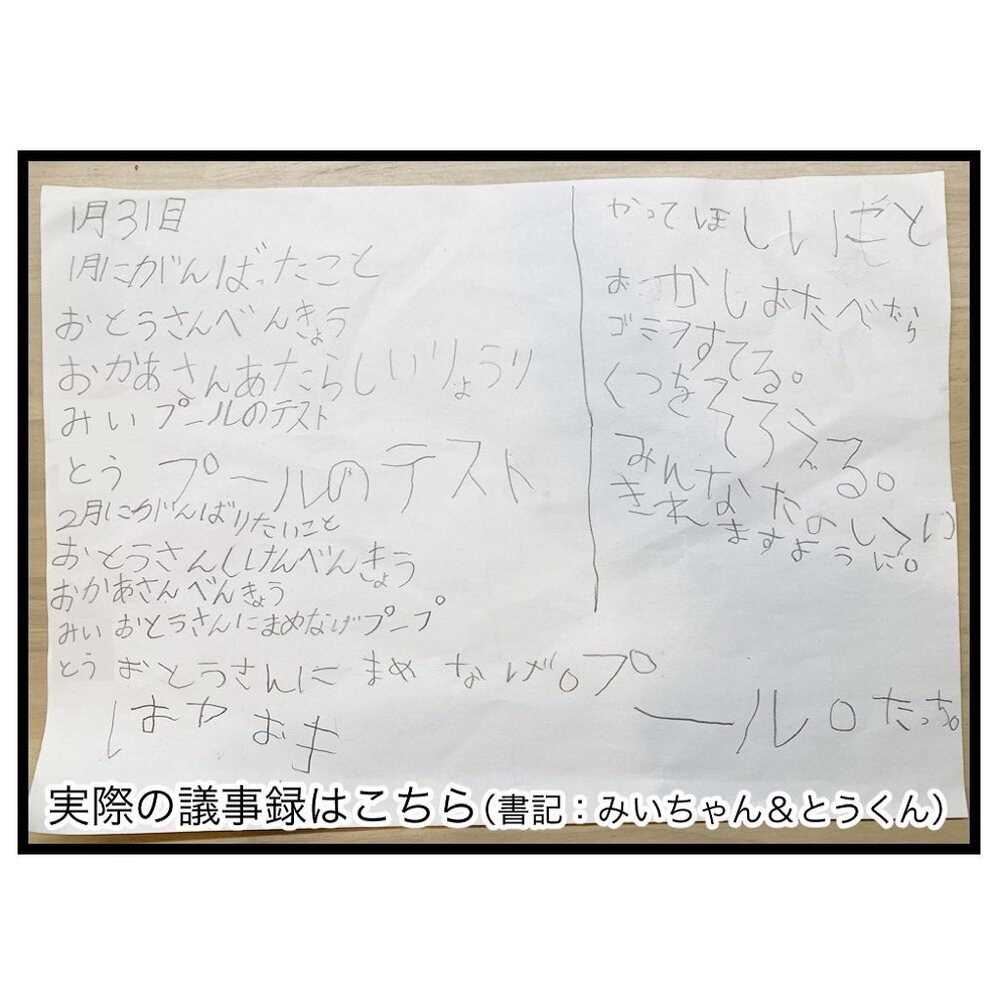 1月31日
1月にがんばったこと
おとうさんべんきょう
おかあさんあたらしいりょうり
みい プールのテスト
とう プールのテスト
2月にがんばりたいこと
おとうさんしけんべんきょう
おかあさんべんきょう
みい おとうさんにまめなげプープ
とう おとうさんに まめ なげ。プ
ール。たっち。
はやおき
かってほしい と
おかしおたべたら
ゴミヲすてる。
くつをそろえる。
みんなたのしくい
きれますように。
実際の議事録はこちら(書記：みいちゃん＆とうくん)